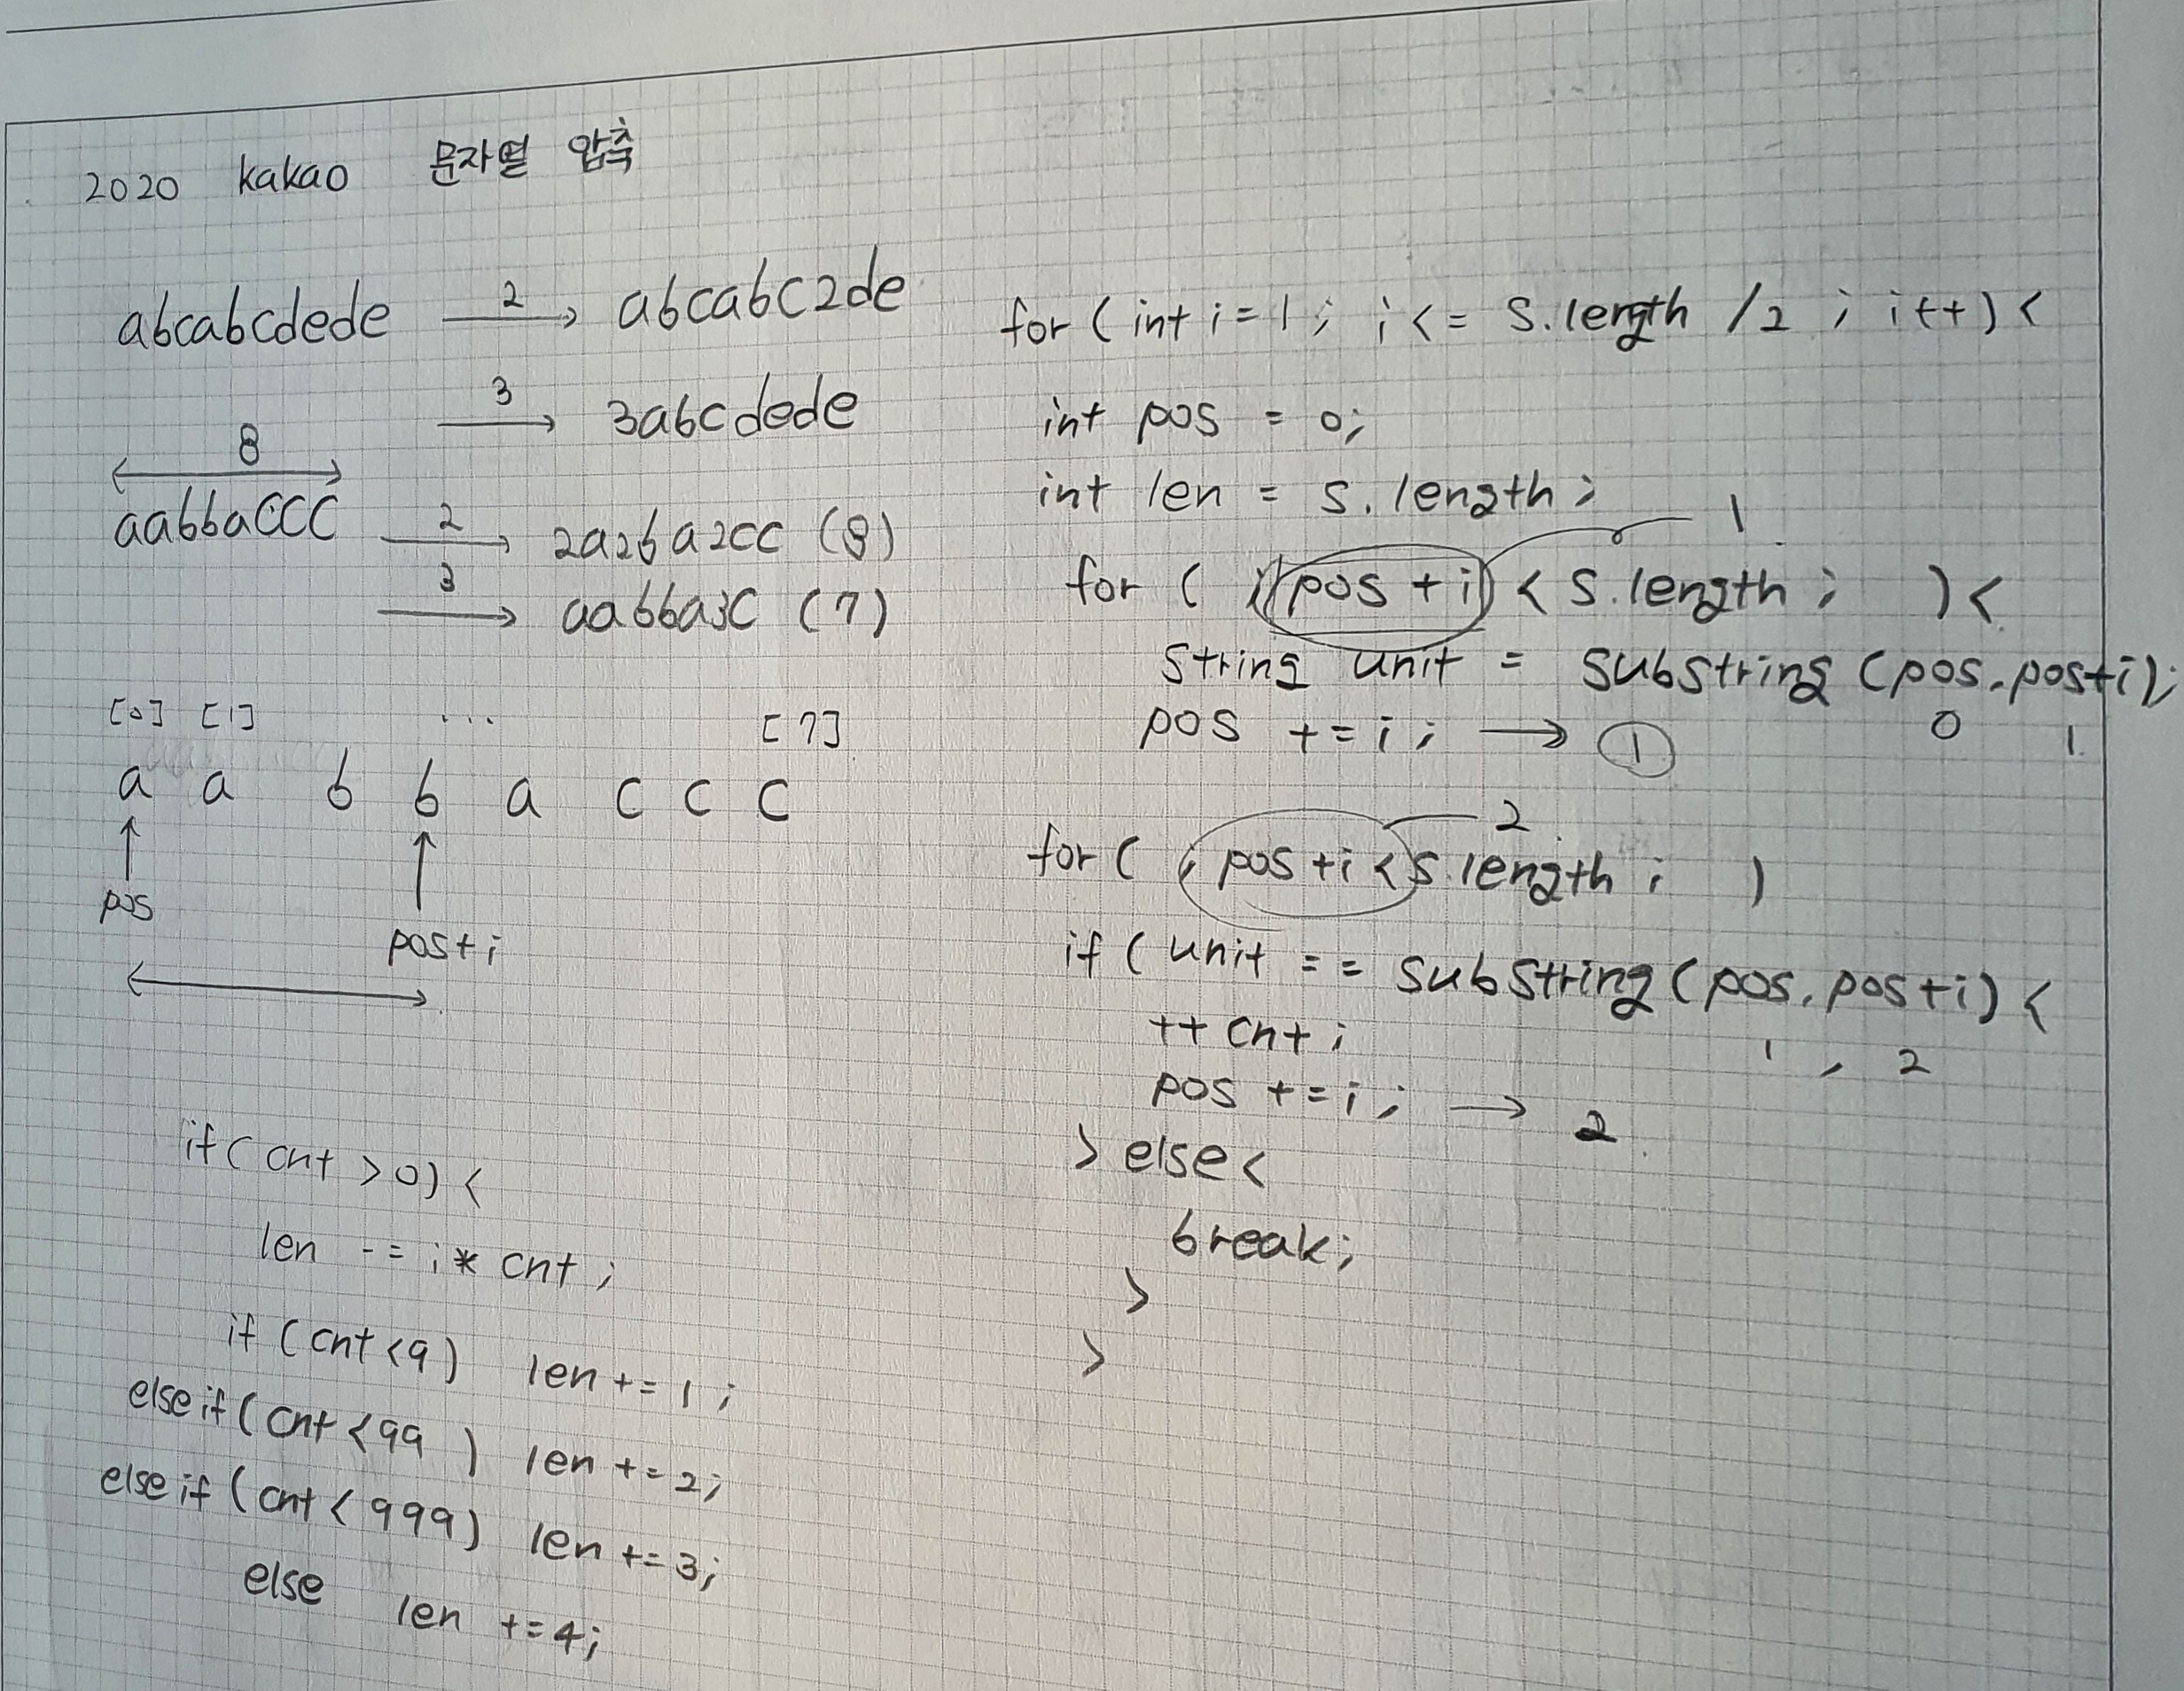 2020 kakao 문자열 압축
abcabcdede 2 → abcabc2de
3 → 3abcdede
8
aabbaccc 2 → 2a2ba2cc (8)
3 → aabba3c (7)
[0] [1] ... [7]
a a b b a c c c
pos
pos+i
if ( cnt >0) <
len -= i* cnt ;
if (cnt <9) len += 1 ;
else if ( cnt <99 ) len += 2;
else if ( cnt < 999) len += 3;
else len +=4;
for ( int i = 1 ; i <= S.length /2 ; i++) <
int pos = 0;
int len = s. length ;
1
for ( ;(pos + i) < S.length ; ) <
string unit = substring (pos, pos+i);
0 1
pos += i ; → ①
2
for ( ; pos +i < S.length ; )
if ( unit == substring (pos, pos+i) <
1 , 2
++ cnt ;
pos += i ; → 2
> else <
break;
>
>